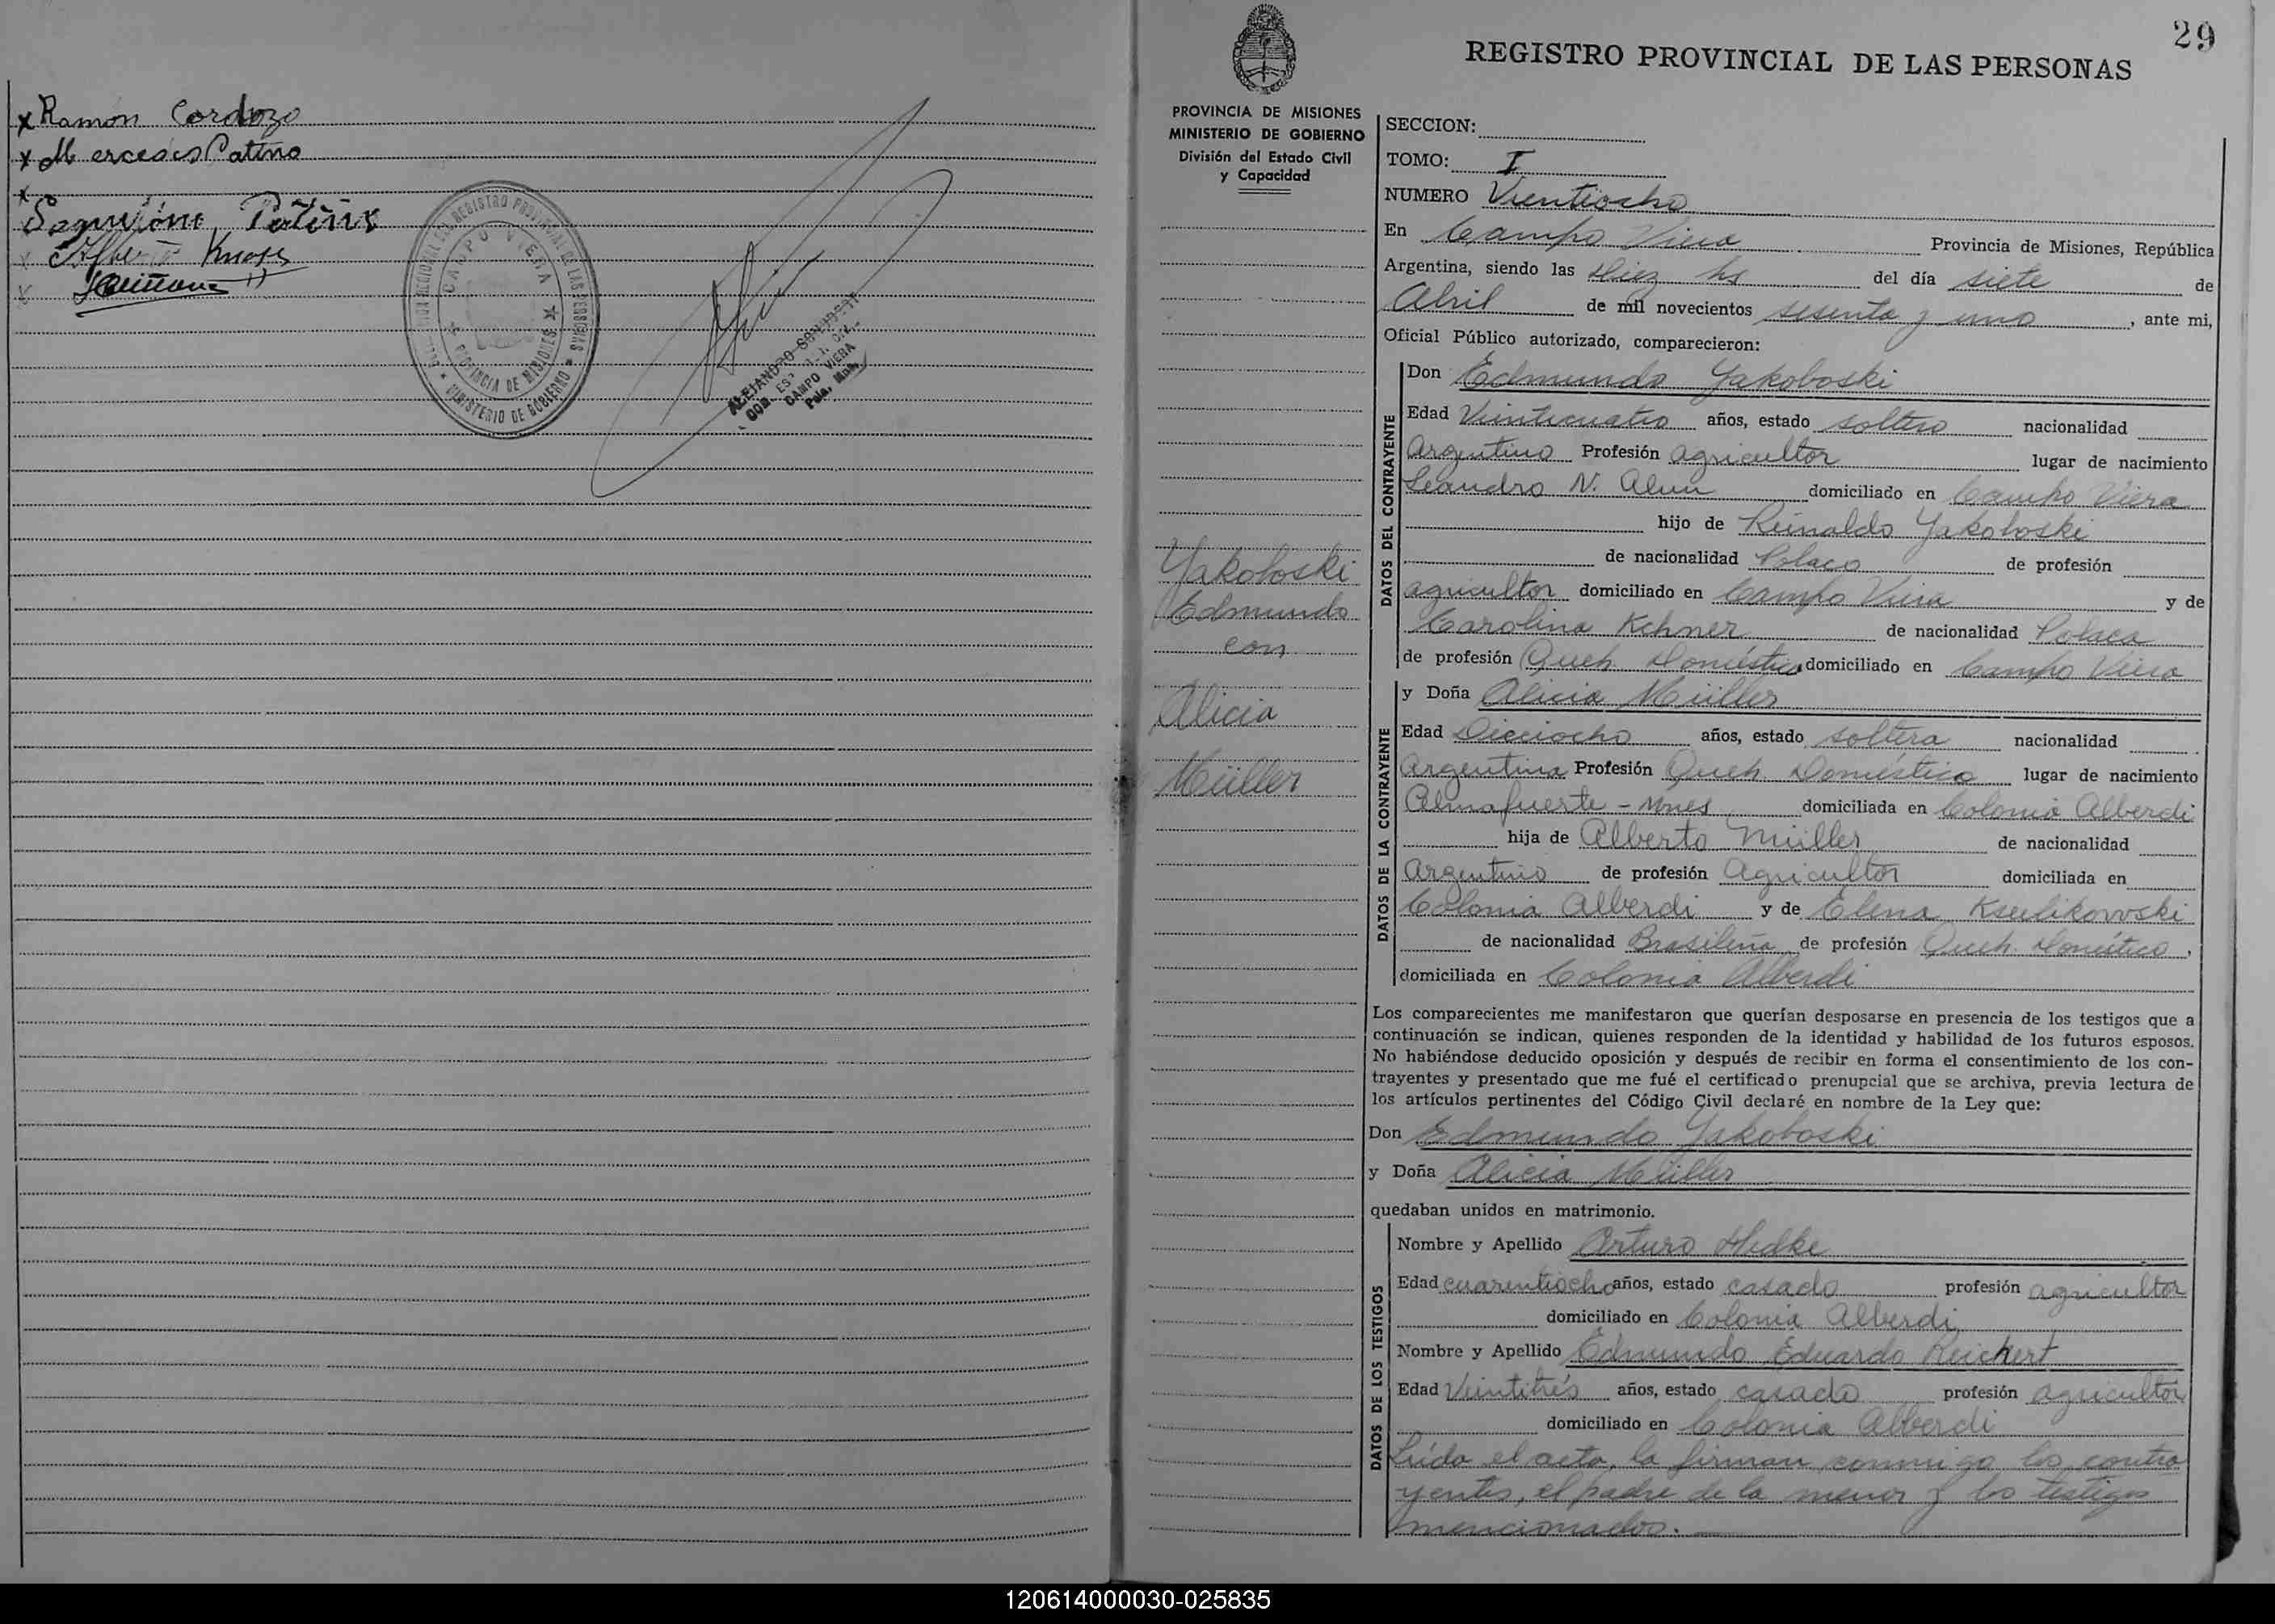 x Ramón Cordozo
x Mercedes Patiño
x
Patiño
x Alberto
x
CAMPO VIERA
PROVINCIA DE MISIONES
MINISTERIO DE GOBIERNO
ALEJANDRO
CAMPO VIERA
29
REGISTRO PROVINCIAL DE LAS PERSONAS
PROVINCIA DE MISIONES
MINISTERIO DE GOBIERNO
División del Estado Civil
y Capacidad
Yakoboski
Edmundo
con
Alicia
Müller
SECCION:
TOMO: I
NUMERO Vientiocho
En Campo Viera Provincia de Misiones, República
Argentina, siendo las Diez hs del día siete de
Abril de mil novecientos sesenta y uno, ante mi,
Oficial Público autorizado, comparecieron:
DATOS DEL CONTRAYENTE
Don Edmundo Yakoboski
Edad Veinticuatro años, estado soltero nacionalidad
Argentino Profesión agricultor lugar de nacimiento
Leandro N. Alem domiciliado en Campo Viera
hijo de Reinaldo Yakoboski
de nacionalidad Polaco de profesión
agricultor domiciliado en Campo Viera y de
Carolina Kchner de nacionalidad Polaca
de profesión Queh. Doméstico domiciliado en Campo Viera
DATOS DE LA CONTRAYENTE
y Doña Alicia Müller
Edad Dieciocho años, estado soltera nacionalidad
Argentina Profesión Queh. Doméstico lugar de nacimiento
Almafuerte - Mnes domiciliada en Colonia Alberdi
hija de Alberto Müller de nacionalidad
Argentino de profesión Agricultor domiciliada en
Colonia Alberdi y de Elena Kseelikowski
de nacionalidad Brasileña de profesión Queh. Doméstico,
domiciliada en Colonia Alberdi
Los comparecientes me manifestaron que querían desposarse en presencia de los testigos que a
continuación se indican, quienes responden de la identidad y habilidad de los futuros esposos.
No habiéndose deducido oposición y después de recibir en forma el consentimiento de los con-
trayentes y presentado que me fué el certificado prenupcial que se archiva, previa lectura de
los artículos pertinentes del Código Civil declaré en nombre de la Ley que:
Don Edmundo Yakoboski
y Doña Alicia Müller
quedaban unidos en matrimonio.
DATOS DE LOS TESTIGOS
Nombre y Apellido Arturo Hedke
Edad cuarentiocho años, estado casado profesión agricultor
domiciliado en Colonia Alberdi
Nombre y Apellido Edmundo Eduardo Reichert
Edad Veintitrés años, estado casado profesión agricultor
domiciliado en Colonia Alberdi
Leída el acta, la firman conmigo los contra
yentes, el padre de la menor y los testigos
mencionados.
120614000030-025835